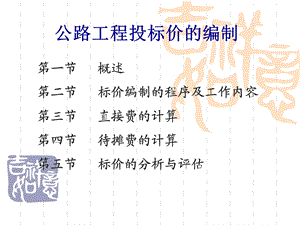 公路工程投标价的编制
第一节 概述
第二节 标价编制的程序及工作内容
第三节 直接费的计算
第四节 待摊费的计算
第五节 标价的分析与评估